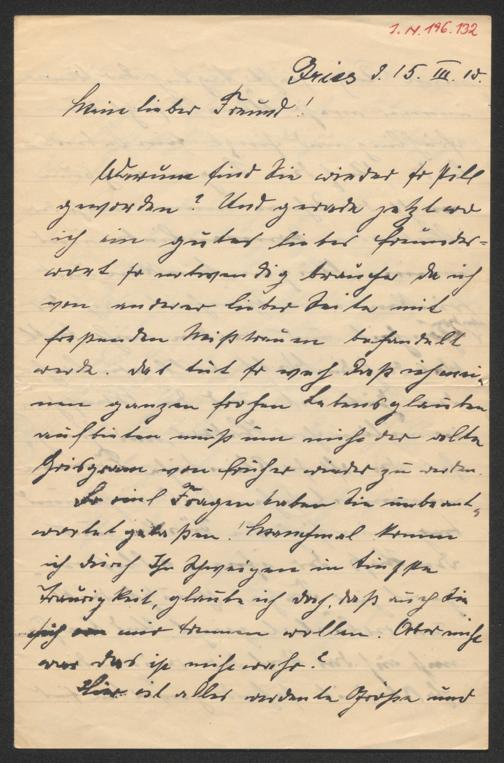 I.N. 196.132
Gries d. 15. III. 10.
Mein lieber Freund!
Warum sind Sie wieder so still
geworden? Und gerade jetzt wo
ich ein gutes liebes Freundes-
wort so notwendig brauche da ich
von anderer lieber Seite mit
fressenden Mißtrauen behandelt
werde. Das tut so weh daß ich mei-
nen ganzen frohen Lebensglauben
aufbieten muß um nicht der alte
Grisgram von früher wieder zu werden.
So viel Fragen haben Sie unbeant-
wortet gelaßen! Manchmal komm
ich durch Ihr Schweigen in tiefste
Traurigkeit, glaube ich doch, daß auch Sie
sich von mir trennen wollen. Aber nicht
war das ist nicht wahr?
Hier ist alles werdente Größe und